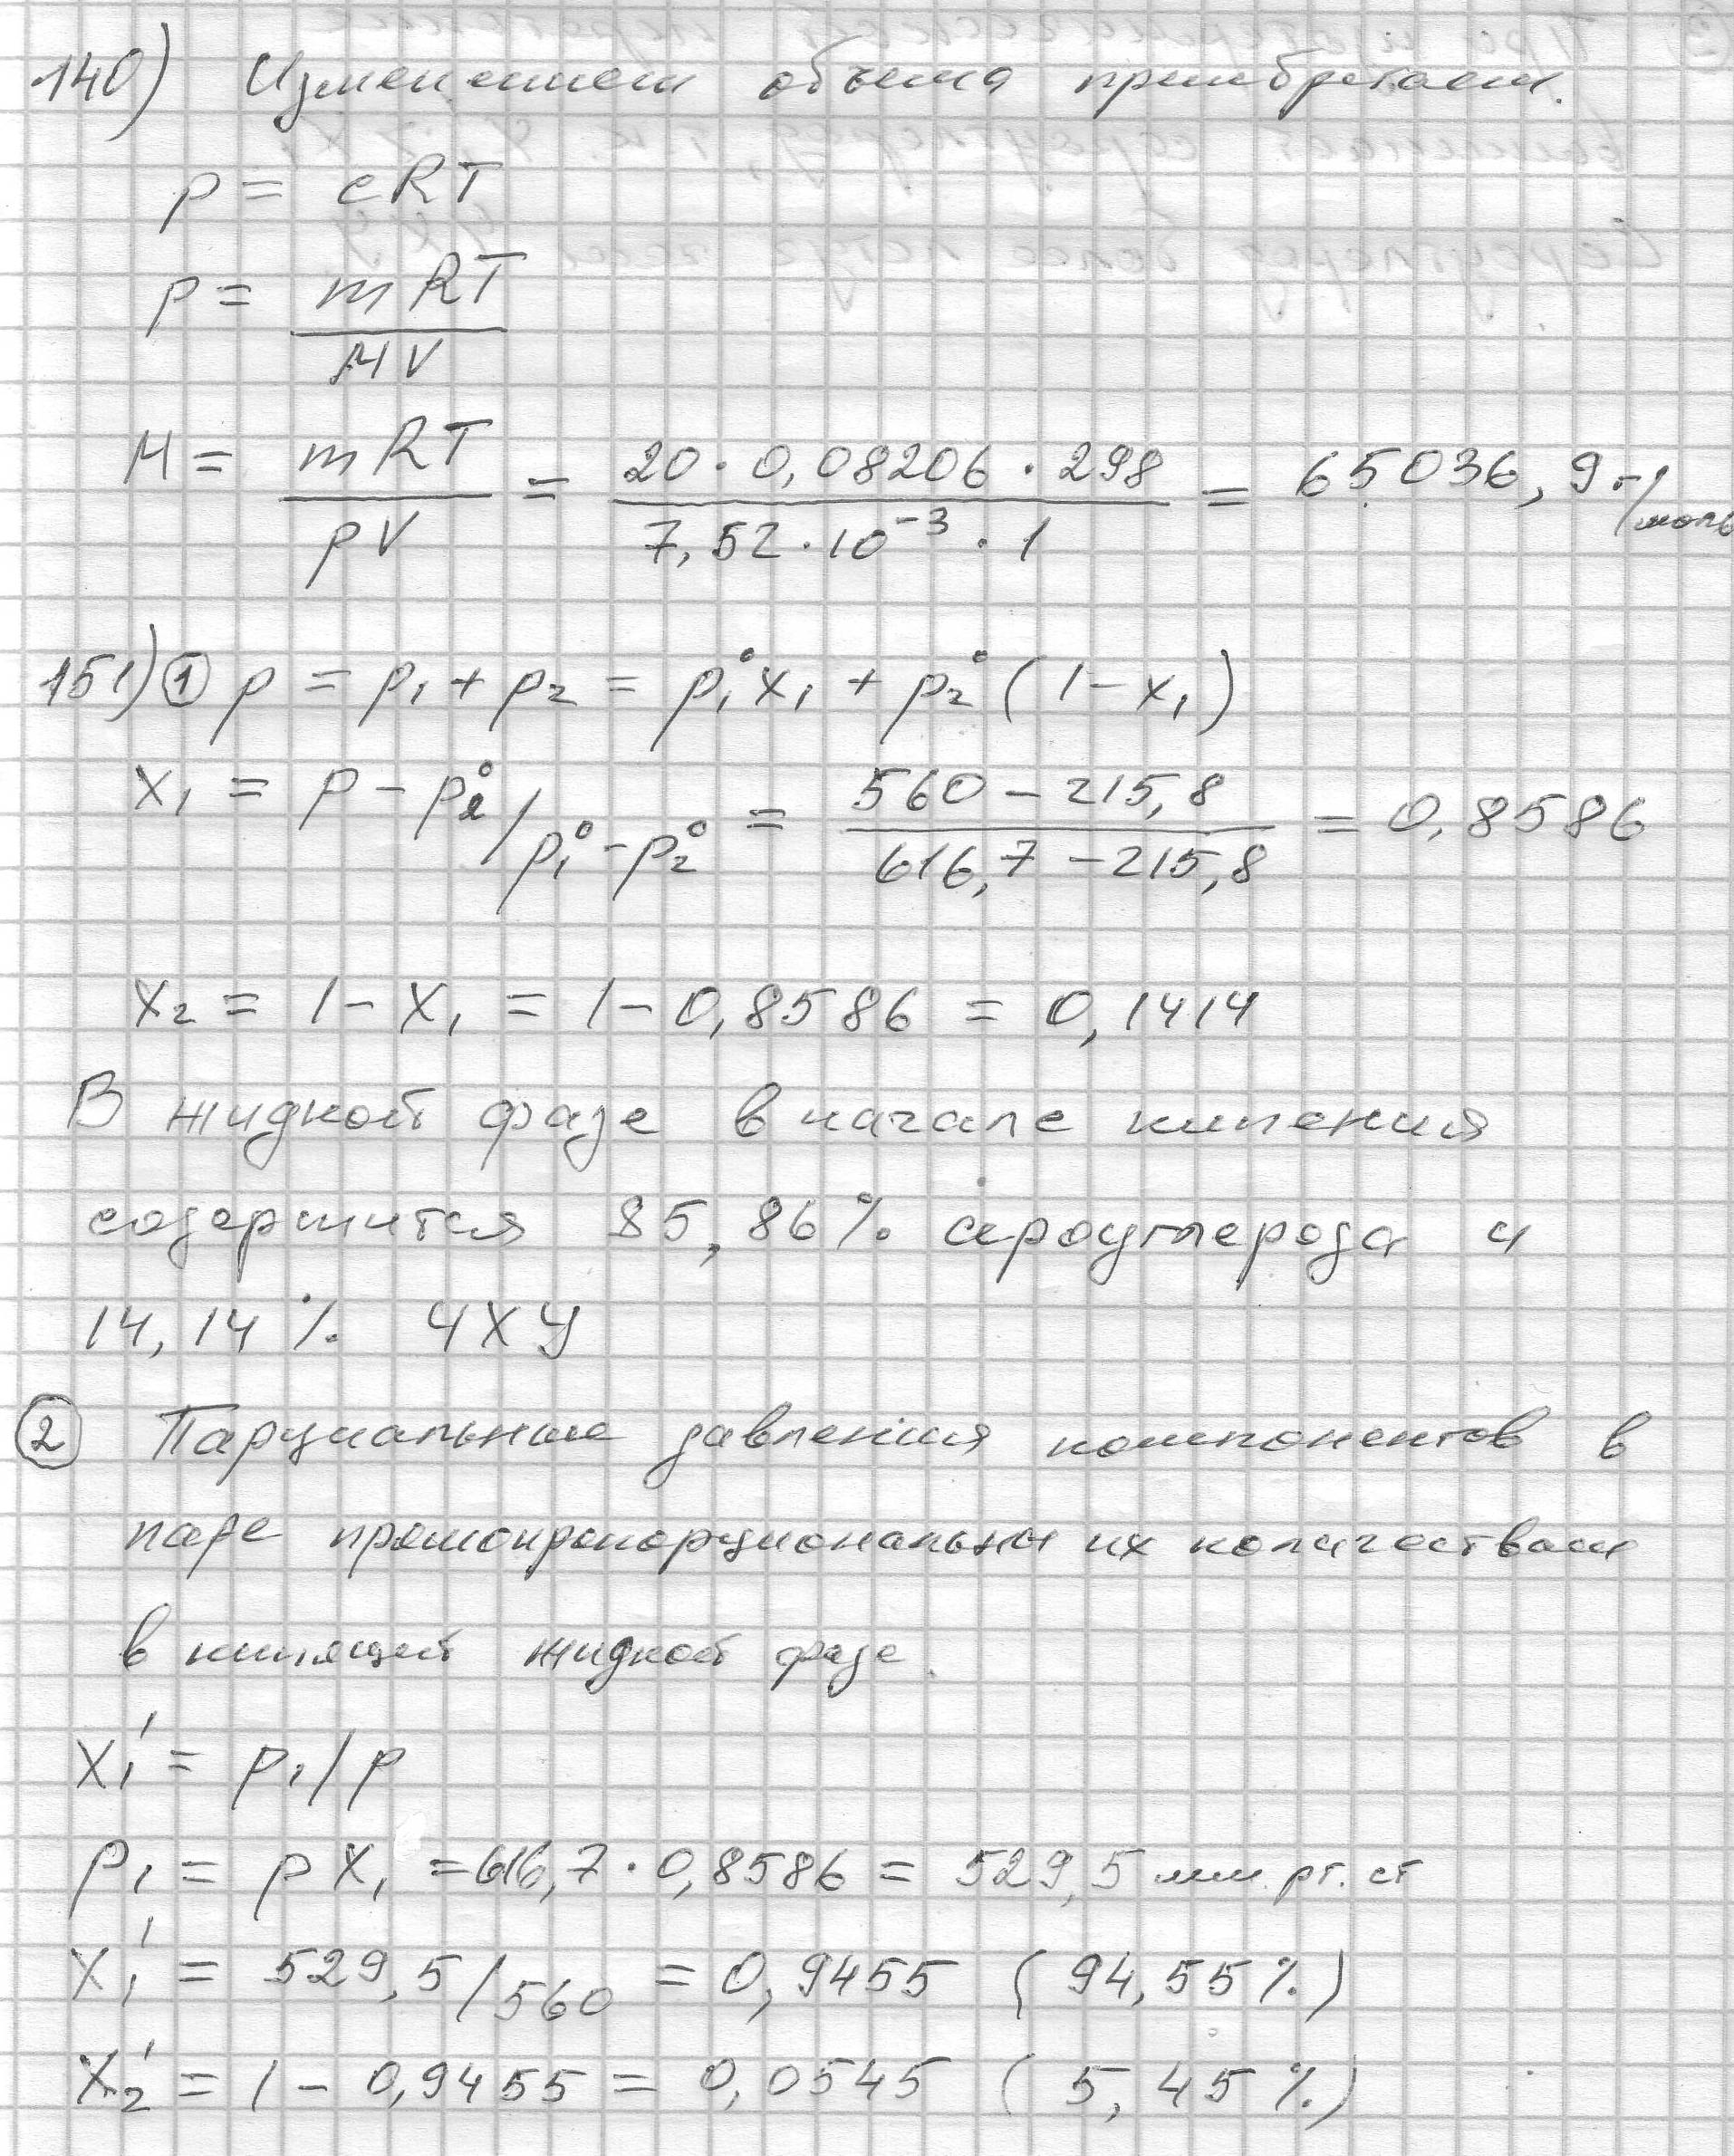 140) Изменением объема принебрегаем.
p = cRT
p = mRT / MV
M = mRT / pV = 20 · 0,08206 · 298 / 7,52 · 10⁻³ · 1 = 65036,9 г/моль
151) ① p = p₁ + p₂ = p₁° x₁ + p₂° (1 − x₁)
x₁ = p − p₂° / p₁° − p₂° = 560 − 215,8 / 616,7 − 215,8 = 0,8586
x₂ = 1 − x₁ = 1 − 0,8586 = 0,1414
В жидкой фазе в начале кипения
содержится 85,86 % сероуглерода и
14,14 % ЧХУ
② Парциальные давления компонентов в
паре прямопропорциональны их количествам
в кипящей жидкой фазе.
x₁' = p₁ / p
p₁ = p x₁ = 616,7 · 0,8586 = 529,5 мм. рт. ст
x₁' = 529,5 / 560 = 0,9455 (94,55 %)
x₂' = 1 − 0,9455 = 0,0545 (5,45 %)